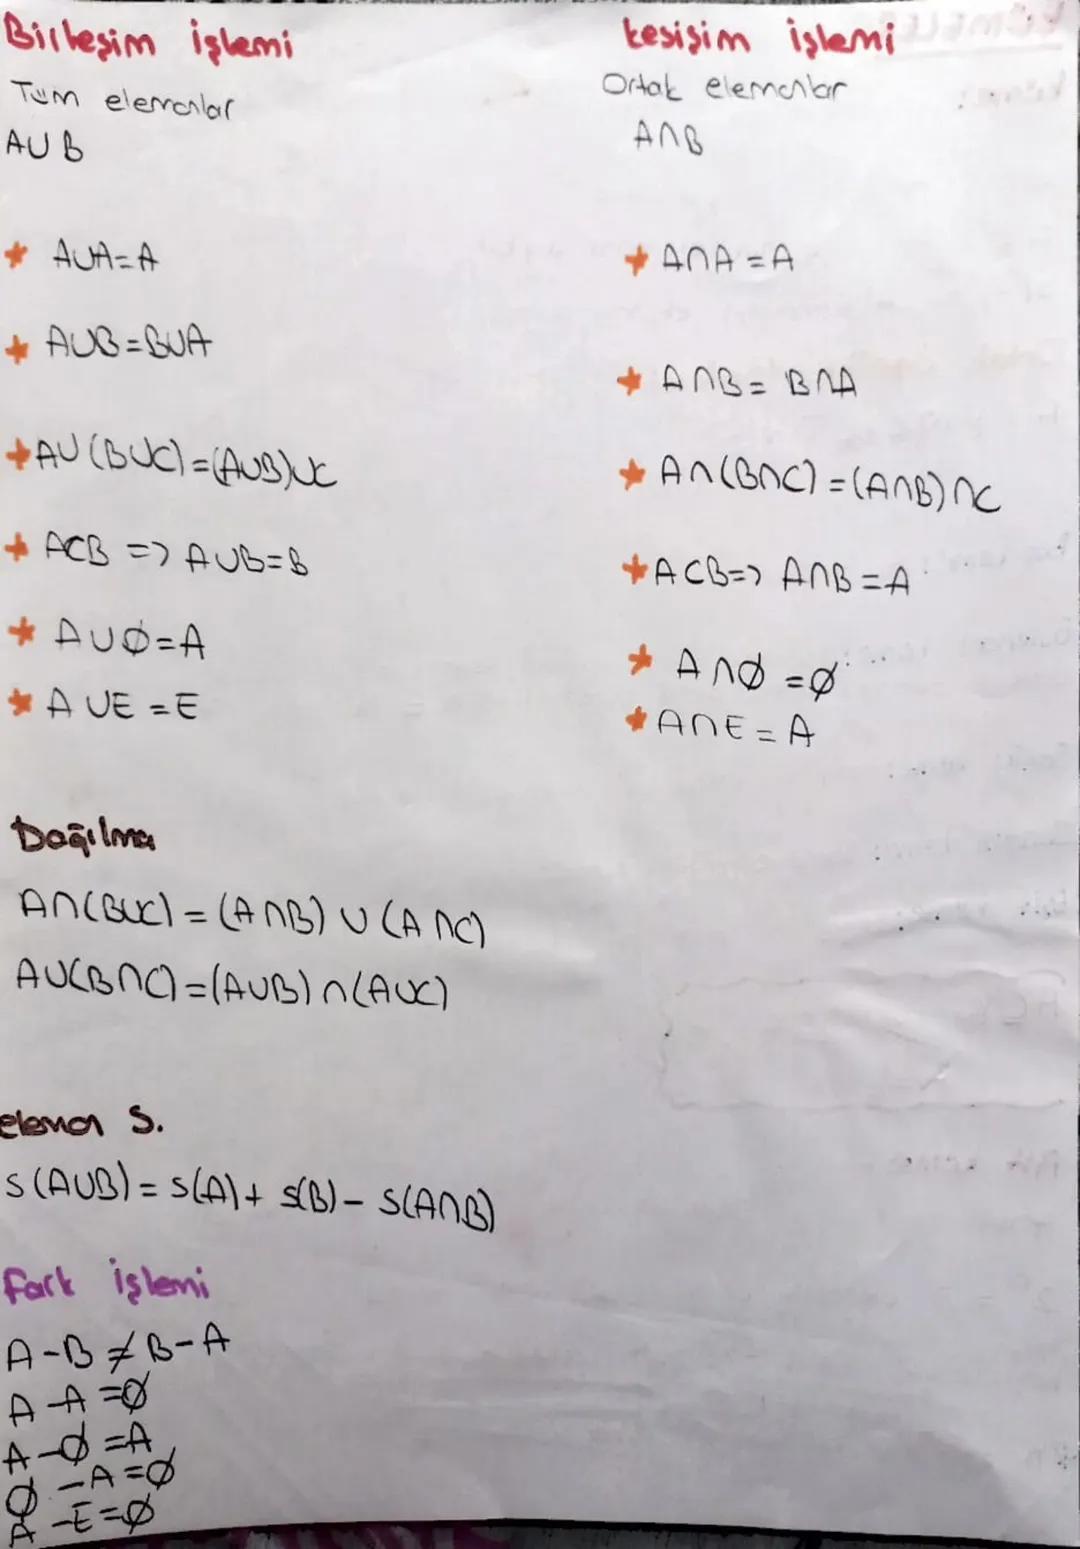 Birleşim işlemi
Tüm elemanlar
AUB
AUA=A
AUB=BUA
AU(BUC)=(AUB)UC
ACB => AUB=B
AU∅=A
AUE=E
kesişim işlemi
Ortak elemanlar
A∩B
A∩A=A
A∩B=B∩A
A∩(B∩C)=(A∩B)∩C
ACB=> A∩B=A
A∩∅=∅
A∩E=A
Dağılma
A∩(BUC)=(A∩B)U(A∩C)
AU(B∩C)=(AUB)∩(AUC)
eleman S.
s(AUB)=s(A)+s(B)-s(A∩B)
fark işlemi
A-B≠B-A
A-A=∅
A-∅=A
∅-A=∅
A-E=∅